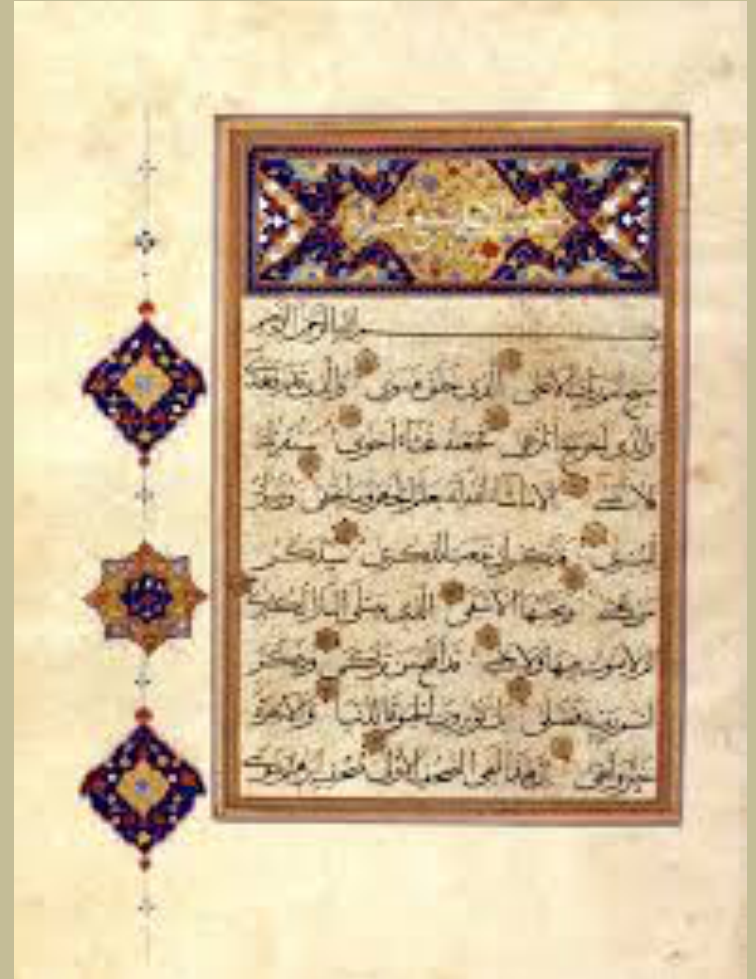 بسم الله الرحمن الرحيم
سبح اسم ربك الأعلى الذي خلق فسوى والذي قدر فهدى
والذي أخرج المرعى فجعله غثاء أحوى سنقرئك
فلا تنسى إلا ما شاء الله إنه يعلم الجهر وما يخفى ونيسرك
لليسرى فذكر إن نفعت الذكرى سيذكر
من يخشى ويتجنبها الأشقى الذي يصلى النار الكبرى
ثم لا يموت فيها ولا يحيى قد أفلح من تزكى وذكر
اسم ربه فصلى بل تؤثرون الحيوة الدنيا والآخرة
خير وأبقى إن هذا لفي الصحف الأولى صحف إبراهيم